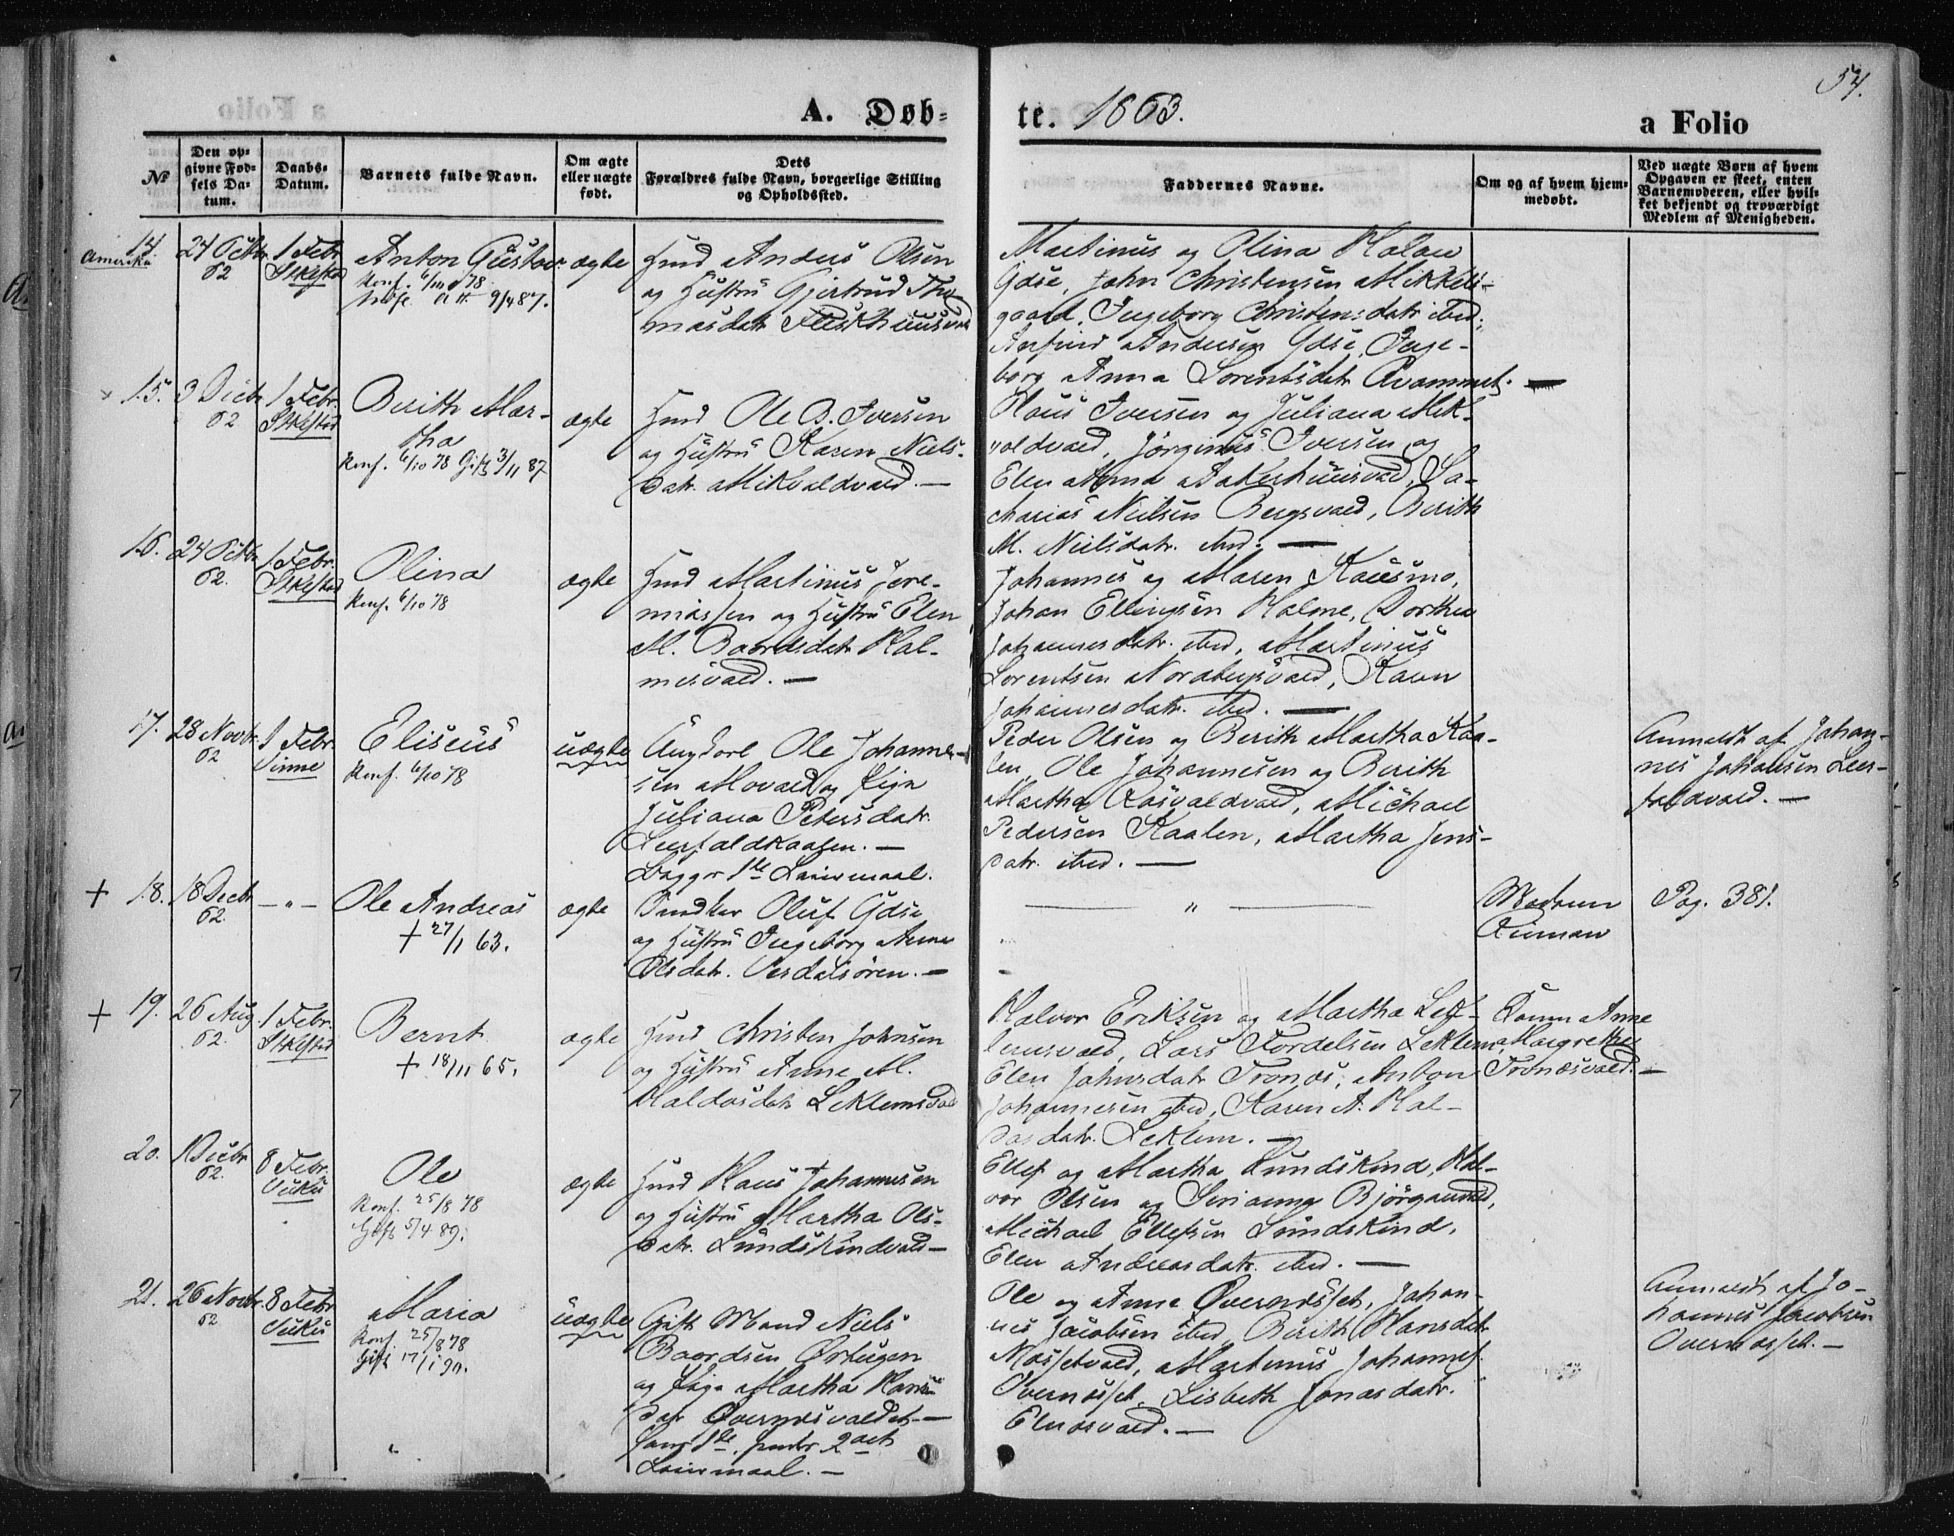 54.
A. Døb-
te. 1863.
a Folio
№
Den op-
givne Fød-
sels Da-
tum.
Daabs-
Datum.
Barnets fulde Navn.
Om ægte
eller uægte
født.
Dets
Forældres fulde Navn, borgerlige Stilling
og Opholdssted.
Faddernes Navne.
Om og af hvem hjem-
medøbt.
Ved uægte Børn af hvem
Opgaven er skeet, enten
Barnemoderen, eller hvil-
ket bekjendt og troværdigt
Medlem af Menigheden.
14.
Amerika
24 Octbr
62
1 Febr
Stikelstad
Anton Gustav
Konf. 6/10 78
9/4 87.
ægte
Hmd Anders Olsen
og Hustru Gjertrud Tho-
masdatr
Martinus og Olina Kalvu
Ydse, John Christensen Mikkels-
gaard, Ingeborg Christensdatr ibed:,
Arfind Andersen Ydse, Inge-
borg Anna Lorentsdatr Qvammet. —
15.
3 Decbr
62
1 Febr.
Stikelstad
Berith Mar-
tha
Konf. 6/10 78 Gift 3/11 87
ægte
Hmd Ole B. Iversen
og Hustru Karen Niels-
datr. Mikvoldvald. —
Claus Iversen og Juliana Mik-
voldvald, Jørginus Iversen og
Elen Anna Aakerhuusvald, Sa-
charias Nielsen Bergsvald, Berith
M. Nielsdatr. ibid: —
16.
24 Octbr
62.
1 Febr.
Stikelstad
Olina
Konf. 6/10 78
ægte
Hmd Martinus Jere-
miassen og Hustru Elen
M. Baardsdatr Hal-
mesvald. —
Johannes og Maren Kausmo,
Johan Ellingsen Halme, Dorthea
Johannesdatr. ibid, Martinus
Lorentsen Nordbergsvald, Karen
Johannesdatr. ibid. —
17.
28 Novbr
62
1 Febr.
Vinne
Eliseus
Konf. 6/10 78
uægte
Ungkarl Ole Johanne-
sen Movald og Pige
Juliana Petersdatr.
Leerfaldskaagen. —
Begges 1ste Leiermaal.
Peder Olsen og Berith Martha Kaa-
len, Ole Johannesen og Berith
Martha Rosvaldvald, Michael
Pedersen Kaalen, Martha Jens-
datr. ibid. —
Anmeldt af Johan-
nes Johansen Leer-
faldvald. —
+ 18.
18 Decbr
62
— " —
Ole Andreas
+ 27/1 63.
ægte
Snedker Oluf Ydse
og Hustru Ingeborg Anna
Olsdatr. Verdalsøren. —
"
Madam
Neuman
Pag. 381.
+ 19.
26 Aug
62.
1 Febr.
Stikelstad
Bernt
+ 18/11 65.
ægte
Hmd Christen Johnsen
og Hustru Anne M.
Haldosdatr Leklemsvald
Halvor Eriksen og Martha Lek-
lemsvald, Lars Tordelsen Leklem,
Elen Johnsdatr Tronæs, Anton
Johannesen ibid, Karen A. Hal-
dosdatr. Leklem. —
Konen Anne
Margrethe
Tronæsvald. —
20.
1 Decbr
62.
8 Febr.
Vuku
Ole
Konf. 25/8 78
Gift 5/4 89.
ægte
Hmd Claus Johannesen
og Hustru Martha Ols-
datr. Sundskindvald. —
Ellef og Martha Sundskind, Hal-
vor Olsen og Serianna Bjørganvald,
Michael Ellefsen Sundskind,
Elen Andreasdatr. ibid. —
21.
26 Novbr.
62
8 Febr.
Vuku
Maria
Konf. 25/8 78
Gift 17/1 90.
uægte
Gift Mand Niels
Baardsen Østugen
og Pige Martha Hans-
datr Overnæsvaldet. —
hans 1ste, hendes 2det
Leiermaal. —
Ole og Anna Øvernæsset, Johan-
nes Jacobsen ibid, Berith Hansdatr
Næssetvald, Martinus Johannes.
Overnæsset, Lisbeth Jonasdatr.
Elnæsvald. —
Anmeldt af Jo-
hannes Jacobsen
Overnæsset. —